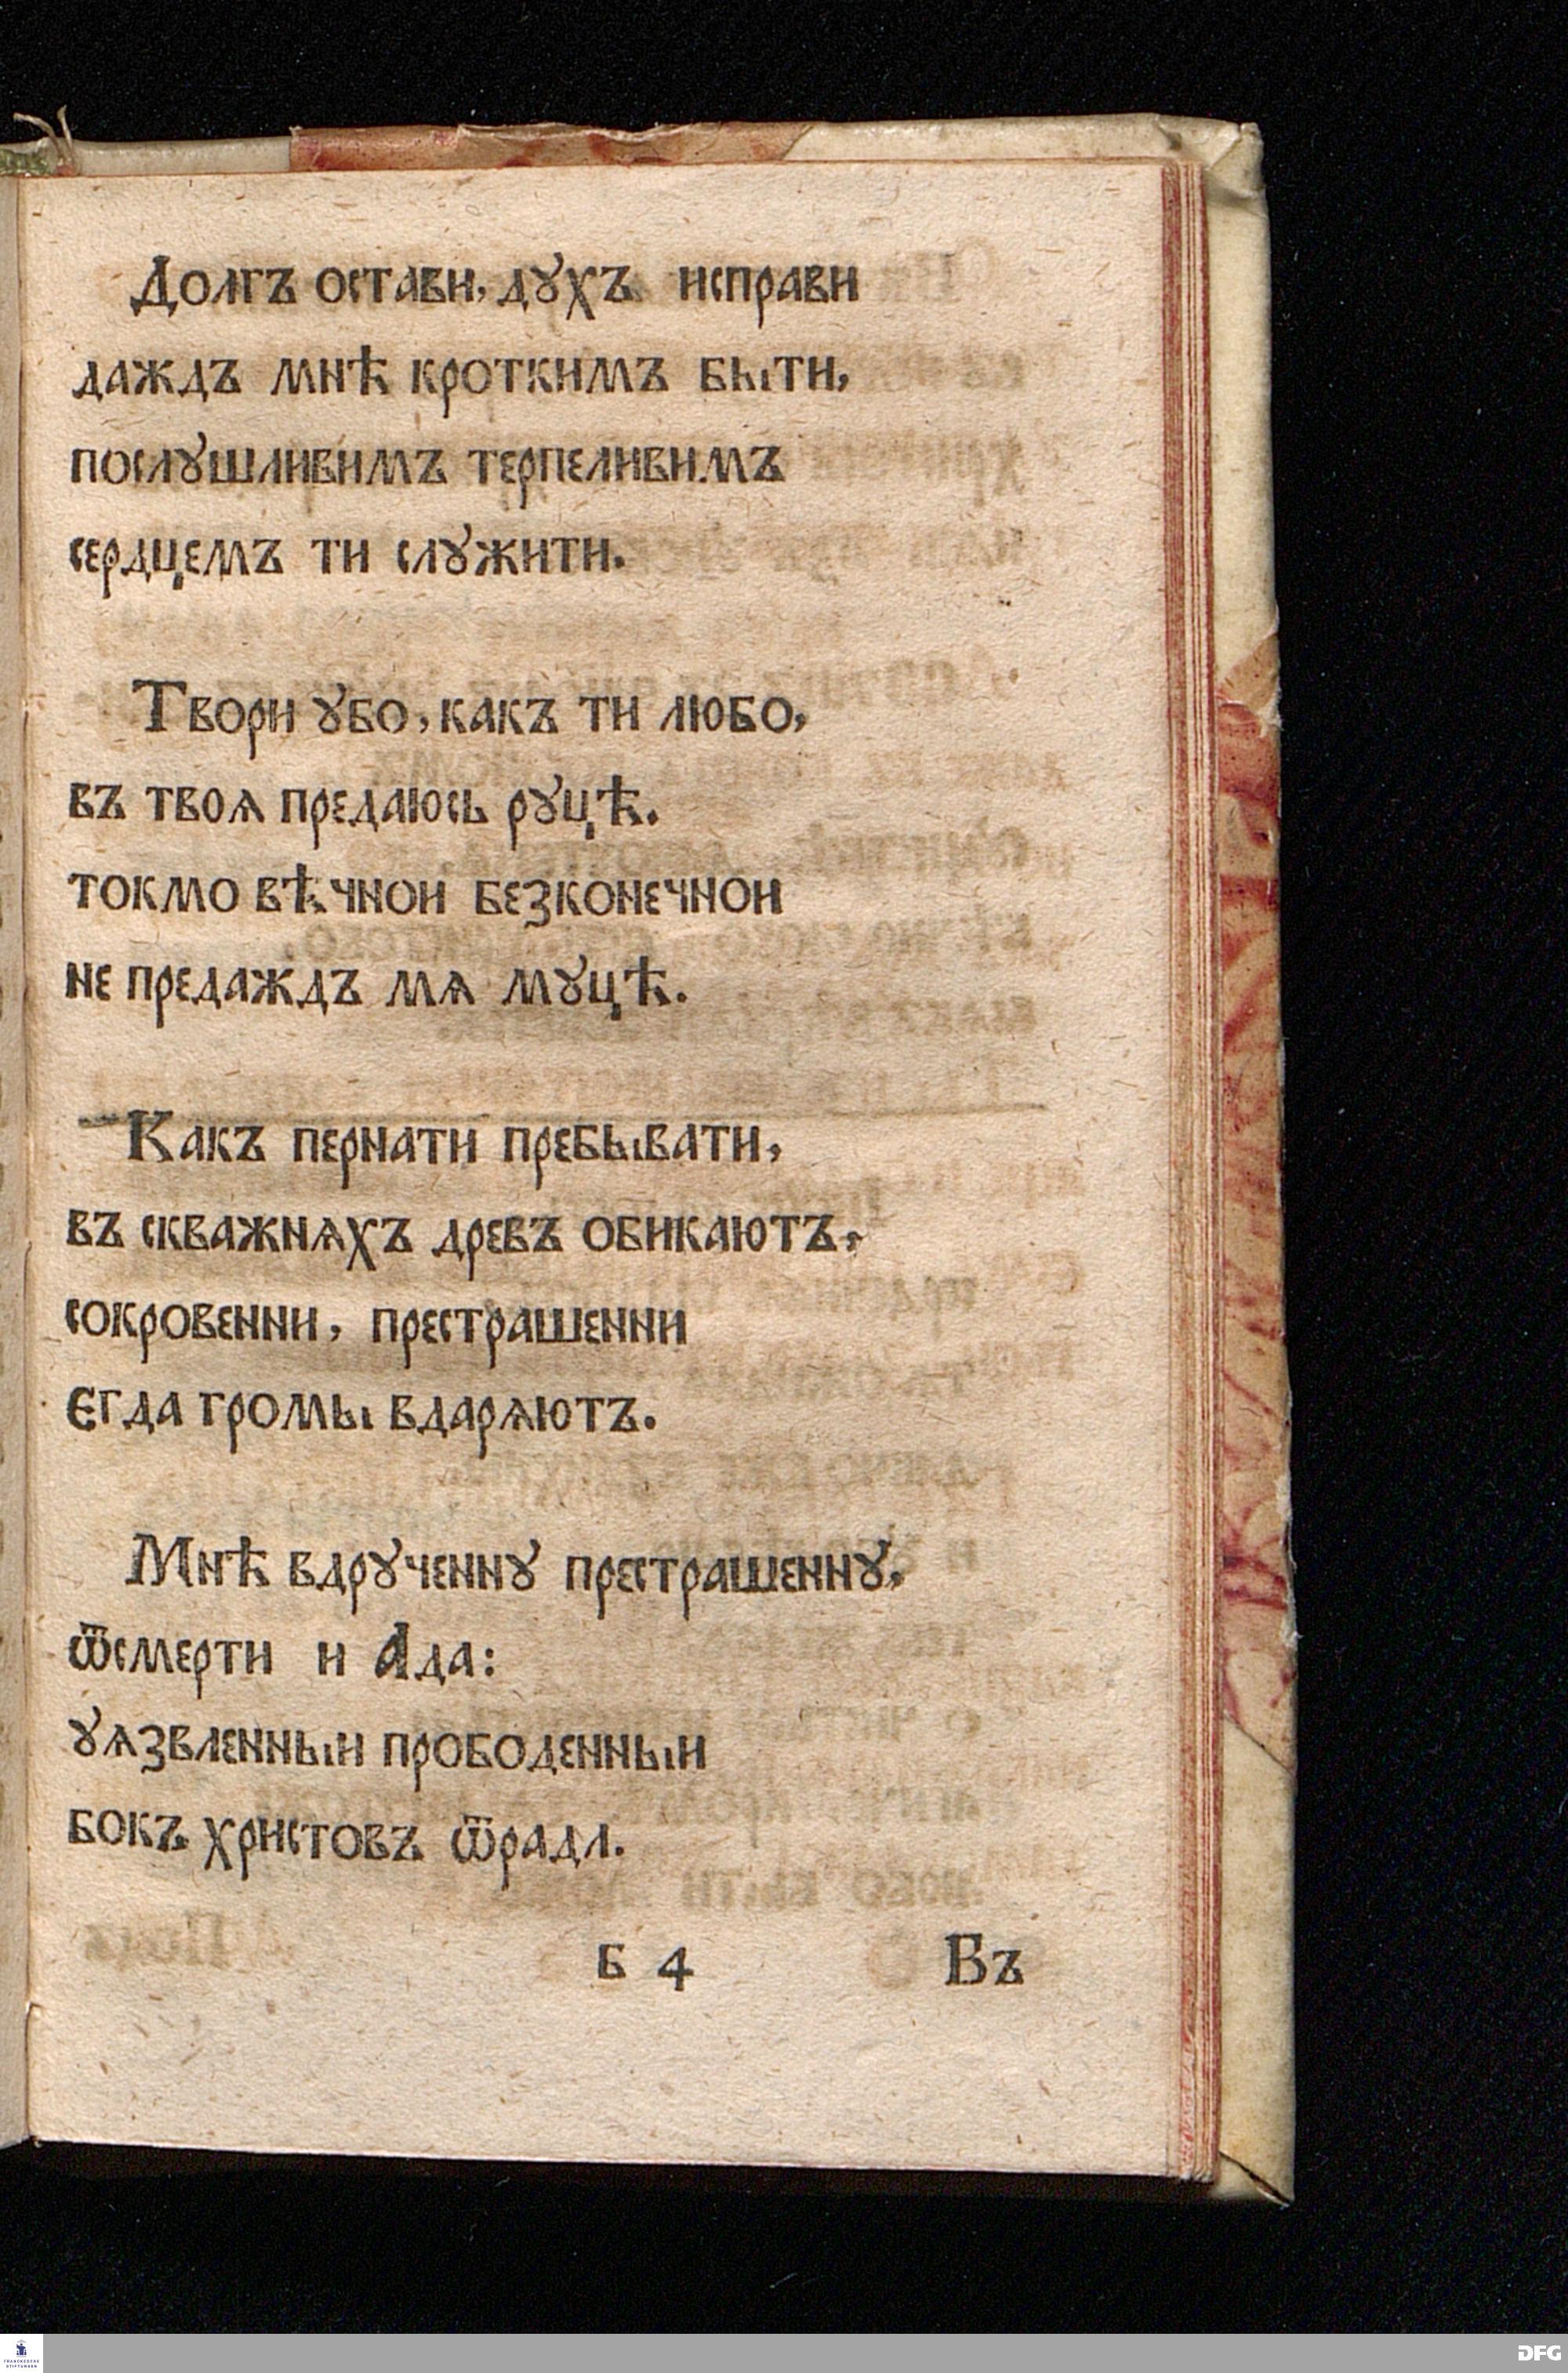 Долгъ остави, дꙋхъ исправи
даждъ мнѣ кроткимъ быти,
послꙋшливимъ терпеливимъ
сердцемъ ти слꙋжити.
Твори ꙋбо, какъ ти любо,
въ твоѧ предаюсь рꙋцѣ.
токмо вѣчнои безконечнои
не предаждъ мѧ мꙋцѣ.
Какъ пернати пребывати,
въ скважнѧхъ древъ обикаютъ,
сокровенни, престрашенни
Єгда громы вдарѧютъ.
Мнѣ вдрꙋченнꙋ престрашеннꙋ,
ѿсмерти и Ада:
ꙋѧзвленныи прободенныи
бокъ христовъ ѿрадл.
Б 4 Въ
FRANCKESCHE
STIFTUNGEN
DFG